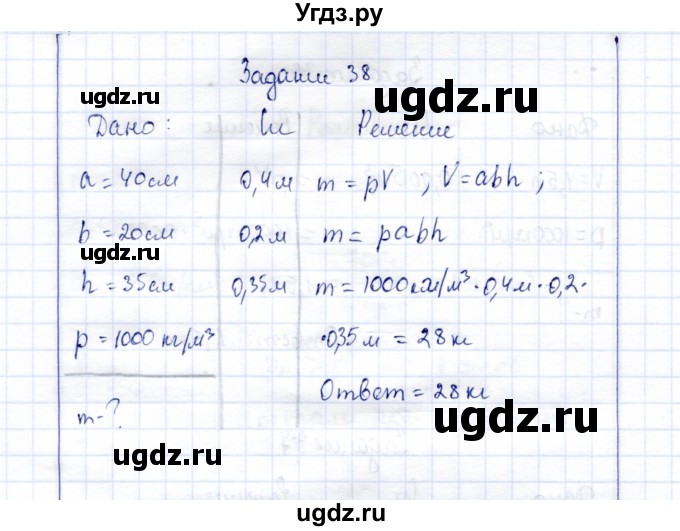 Угдз.ру
Задание 38
ugdz.ru ugdz.ru
Дано: Си Решение
a = 40см 0,4м m = ρV, V = abh;
b = 20см 0,2м m = ρabh
h = 35см 0,35м m = 1000кг/м³ · 0,4м · 0,2 ·
ρ = 1000 кг/м³ · 0,35м = 28кг
Ответ = 28кг
m-?
ugdz.ru ugdz.ru
ugdz.ru ugdz.ru
ugdz.ru